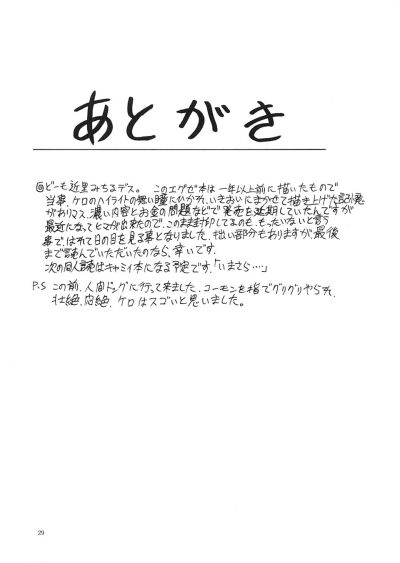 あとがき
◎どーも近里みちるデス。 このエグゼ本は一年以上前に描いたもので
当事、ケロのハイライトの無い瞳にひかれ、いきおいにまかせて描き上げた記憶
がありマス。濃い内容とお金の問題などで発売を延期していたんですが
最近になってヒマが出来たので、このまま封印してるのも、もったいないと言う
事で、はれて日の目を見る事となりました。拙い部分もありますが、最後
まで読んでいただいたのなら、幸いです。
次の同人誌はキャミィ本になる予定です。「いまさら…」
P.S この前、人間ドッグに行って来ました。コーモンを指でグリグリやられ、
壮絶、悶絶、ケロはスゴいと思いました。
29